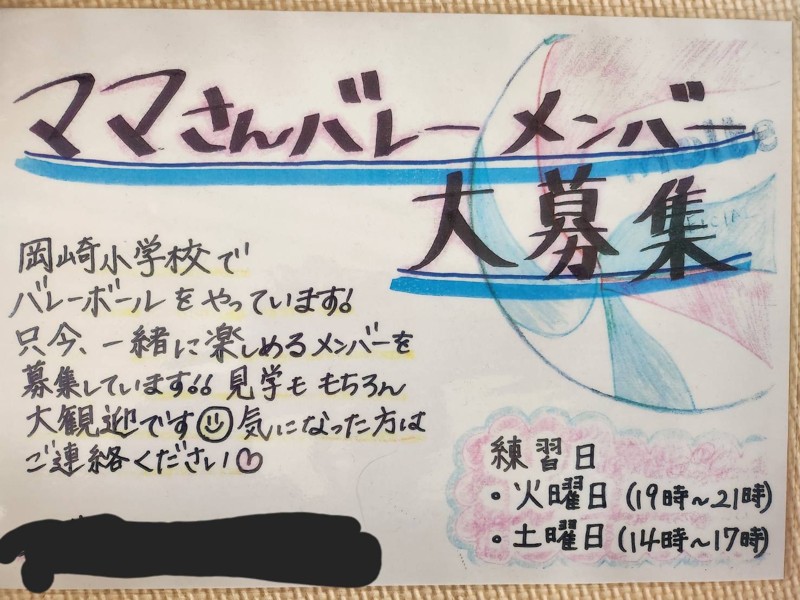 ママさんバレーメンバー
大募集
岡崎小学校で
バレーボールをやっています!
只今、一緒に楽しめるメンバーを
募集しています!! 見学ももちろん
大観迎です 気になった方は
ご連絡ください♡
練習日
・火曜日(19時~21時)
・土曜日(14時~17時)